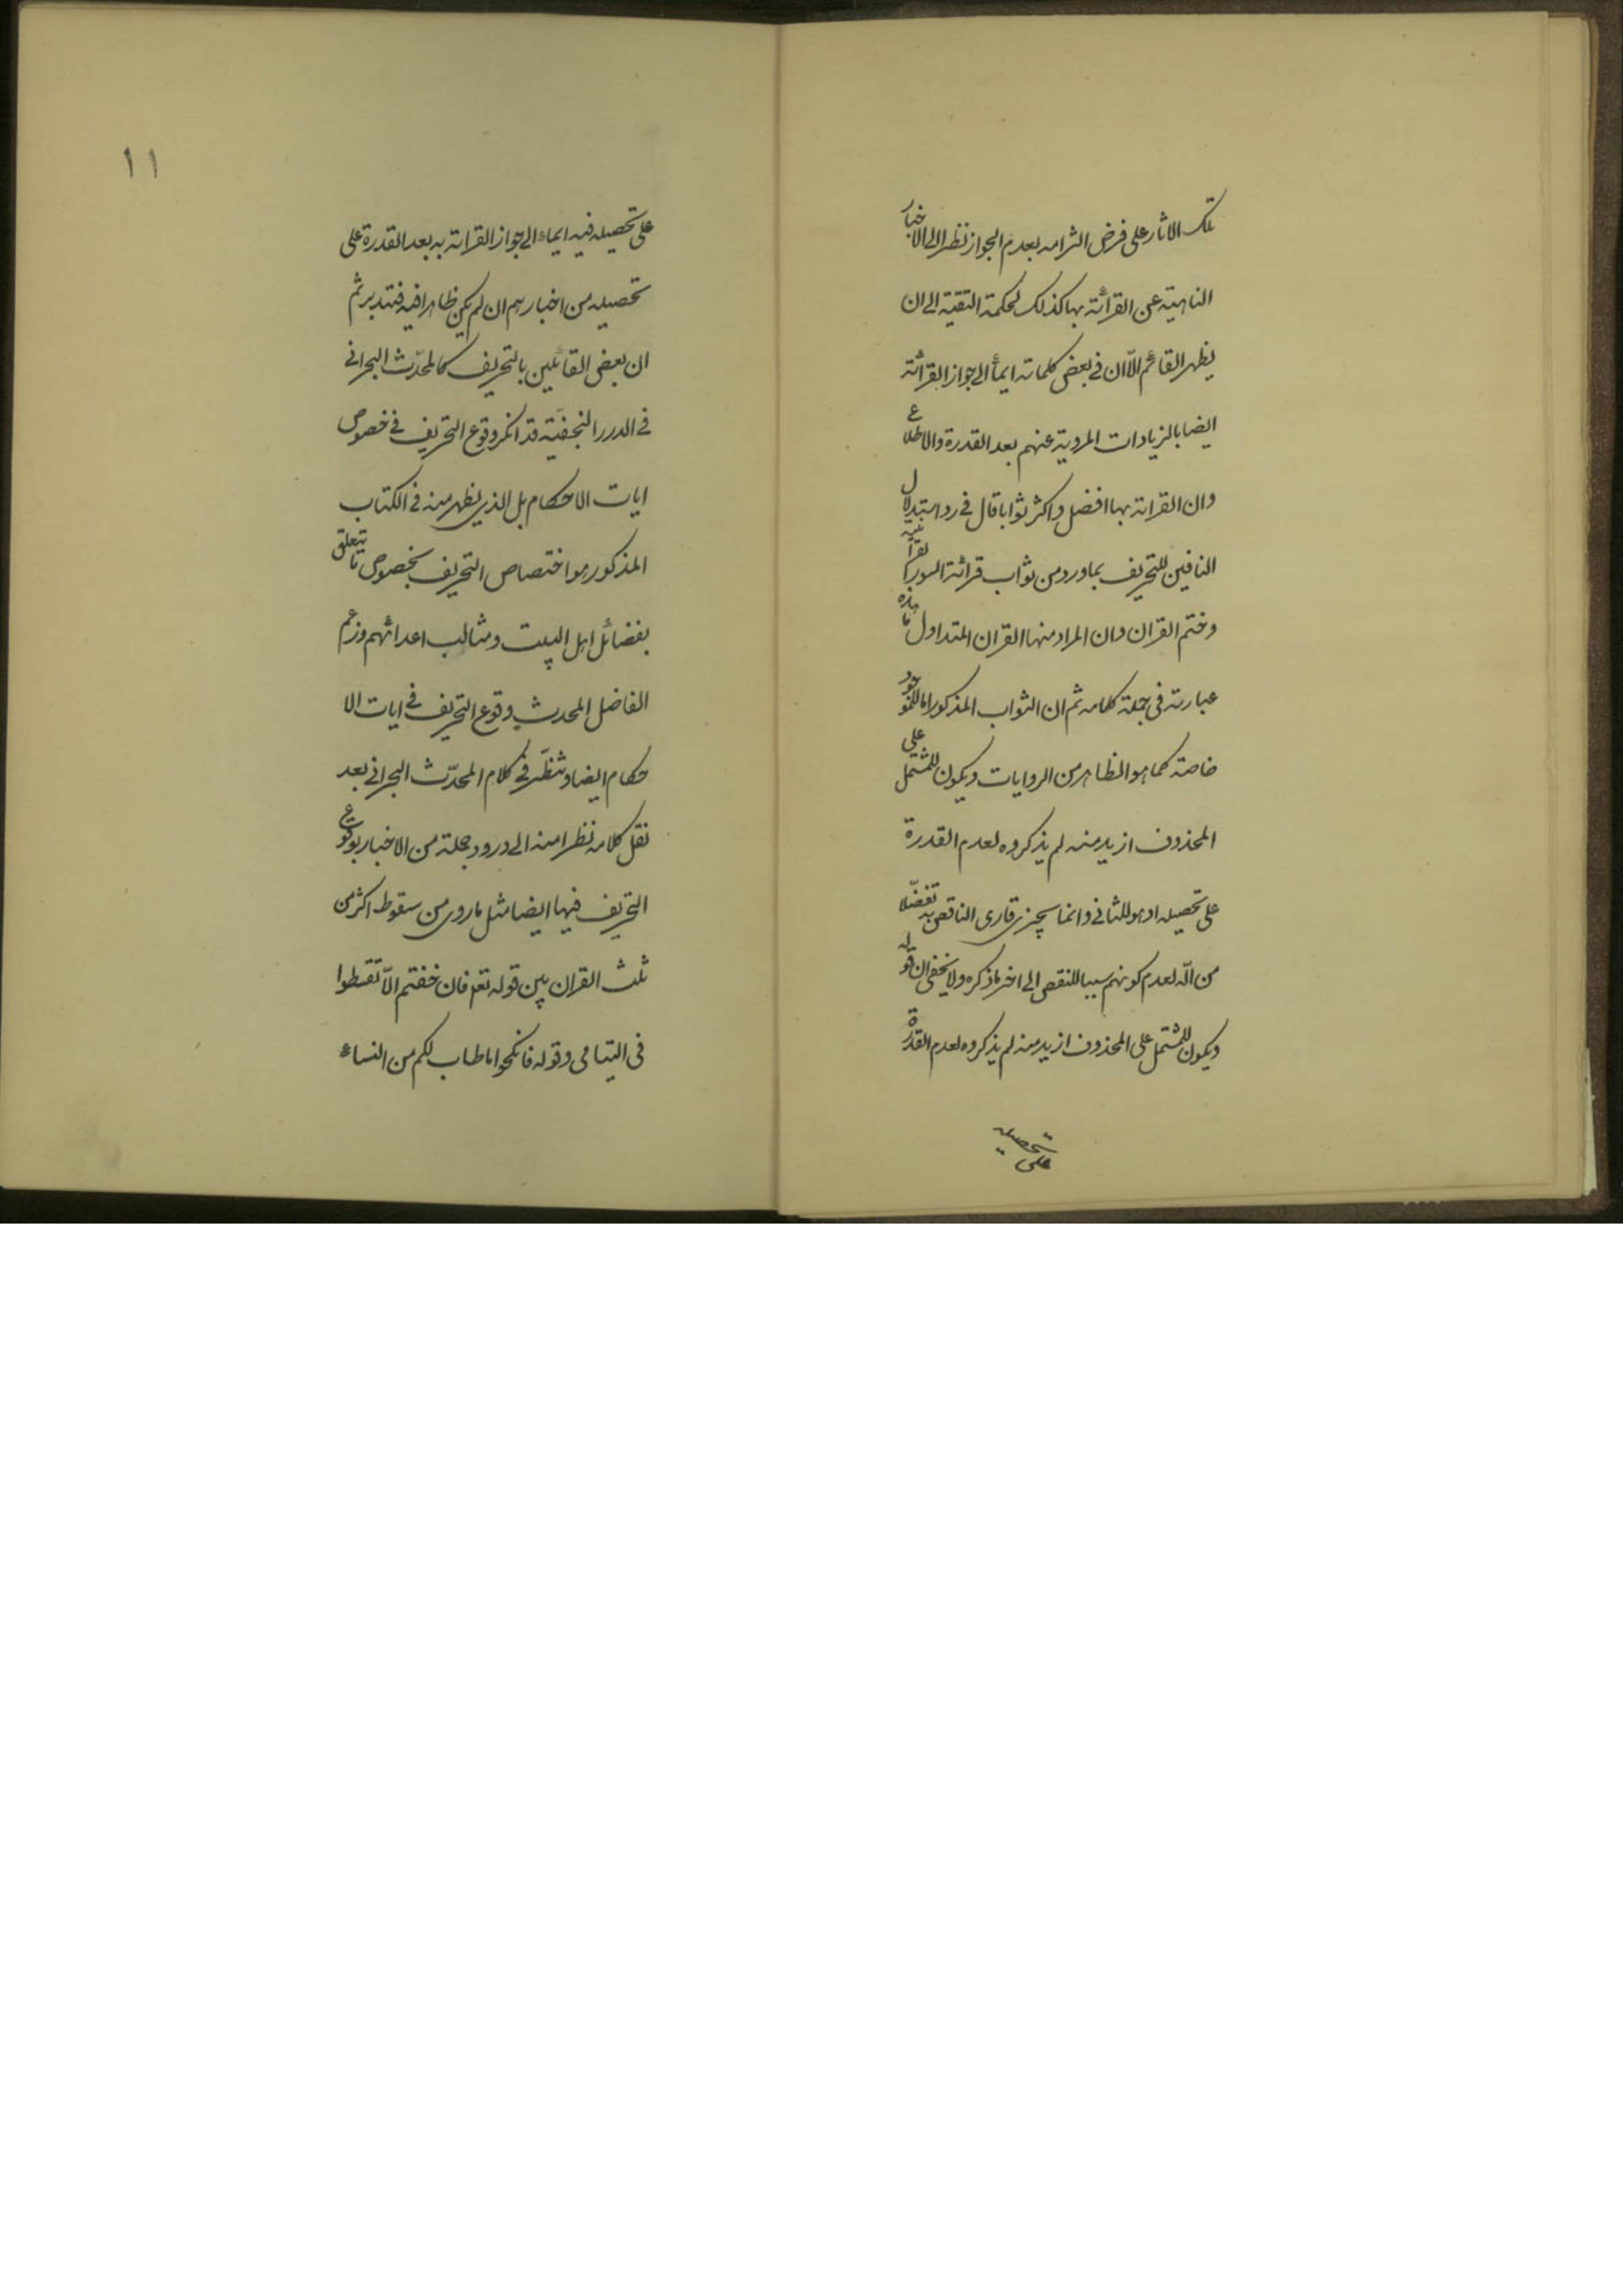 تلك الاثار على فرض التزامه بعدم الجواز نظرا الى الاخبار
الناهية عن القرائة بها كذلك لحكمة التقية الى ان
يظهر القائم الّا ان في بعض كلماته ايمأ الى جواز القرائة
ايضا بالزيادات المروية عنهم بعد القدرة والاطلاع
وان القرائة بها افضل واكثر ثوابا قال في رد استدلال
النافين للتحريف بما ورد من ثواب قرائة السور القرآنية
وختم القران وان المراد منها القران المتداول ما هذه
عبارته في جملة كلامه ثم ان الثواب المذكور اما للموجود
خاصة كما هو الظاهر من الروايات ويكون للمشتمل على
المحذوف ازيد منه لم يذكروه لعدم القدرة
على تحصيله او هو للثاني وانما يجزى قارى الناقص به تفضّلا
من الله لعدم كونهم سببا للنقص الى اخر ما ذكره ولا يخفى ان قوله
ويكون للمشتمل على المحذوف ازيد منه لم يذكروه لعدم القدرة
على تحصيله
١١
على تحصيله فيه ايماء الى جواز القرائة به بعد القدرة على
تحصيله من اخبارهم ان لم يكن ظاهرا فيه فتدبر ثم
ان بعض القائلين بالتحريف كالمحدّث البحرانى
في الدرر النجفيّة قد انكر وقوع التحريف في خصوص
ايات الاحكام بل الذي يظهر منه في الكتاب
المذكور هو اختصاص التحريف بخصوص ما يتعلق
بفضائل اهل البيت ومثالب اعدائهم وزعم
الفاضل المحدث وقوع التحريف في ايات الا
حكام ايضا وتنظّر في كلام المحدّث البحرانى بعد
نقل كلامه نظرا منه الى ورود جملة من الاخبار بوقوع
التحريف فيها ايضا مثل ما روى من سقوط اكثر من
ثلث القران بين قوله تع فان خفتم الّا تقسطوا
فى اليتامى وقوله فانكحوا ما طاب لكم من النساء